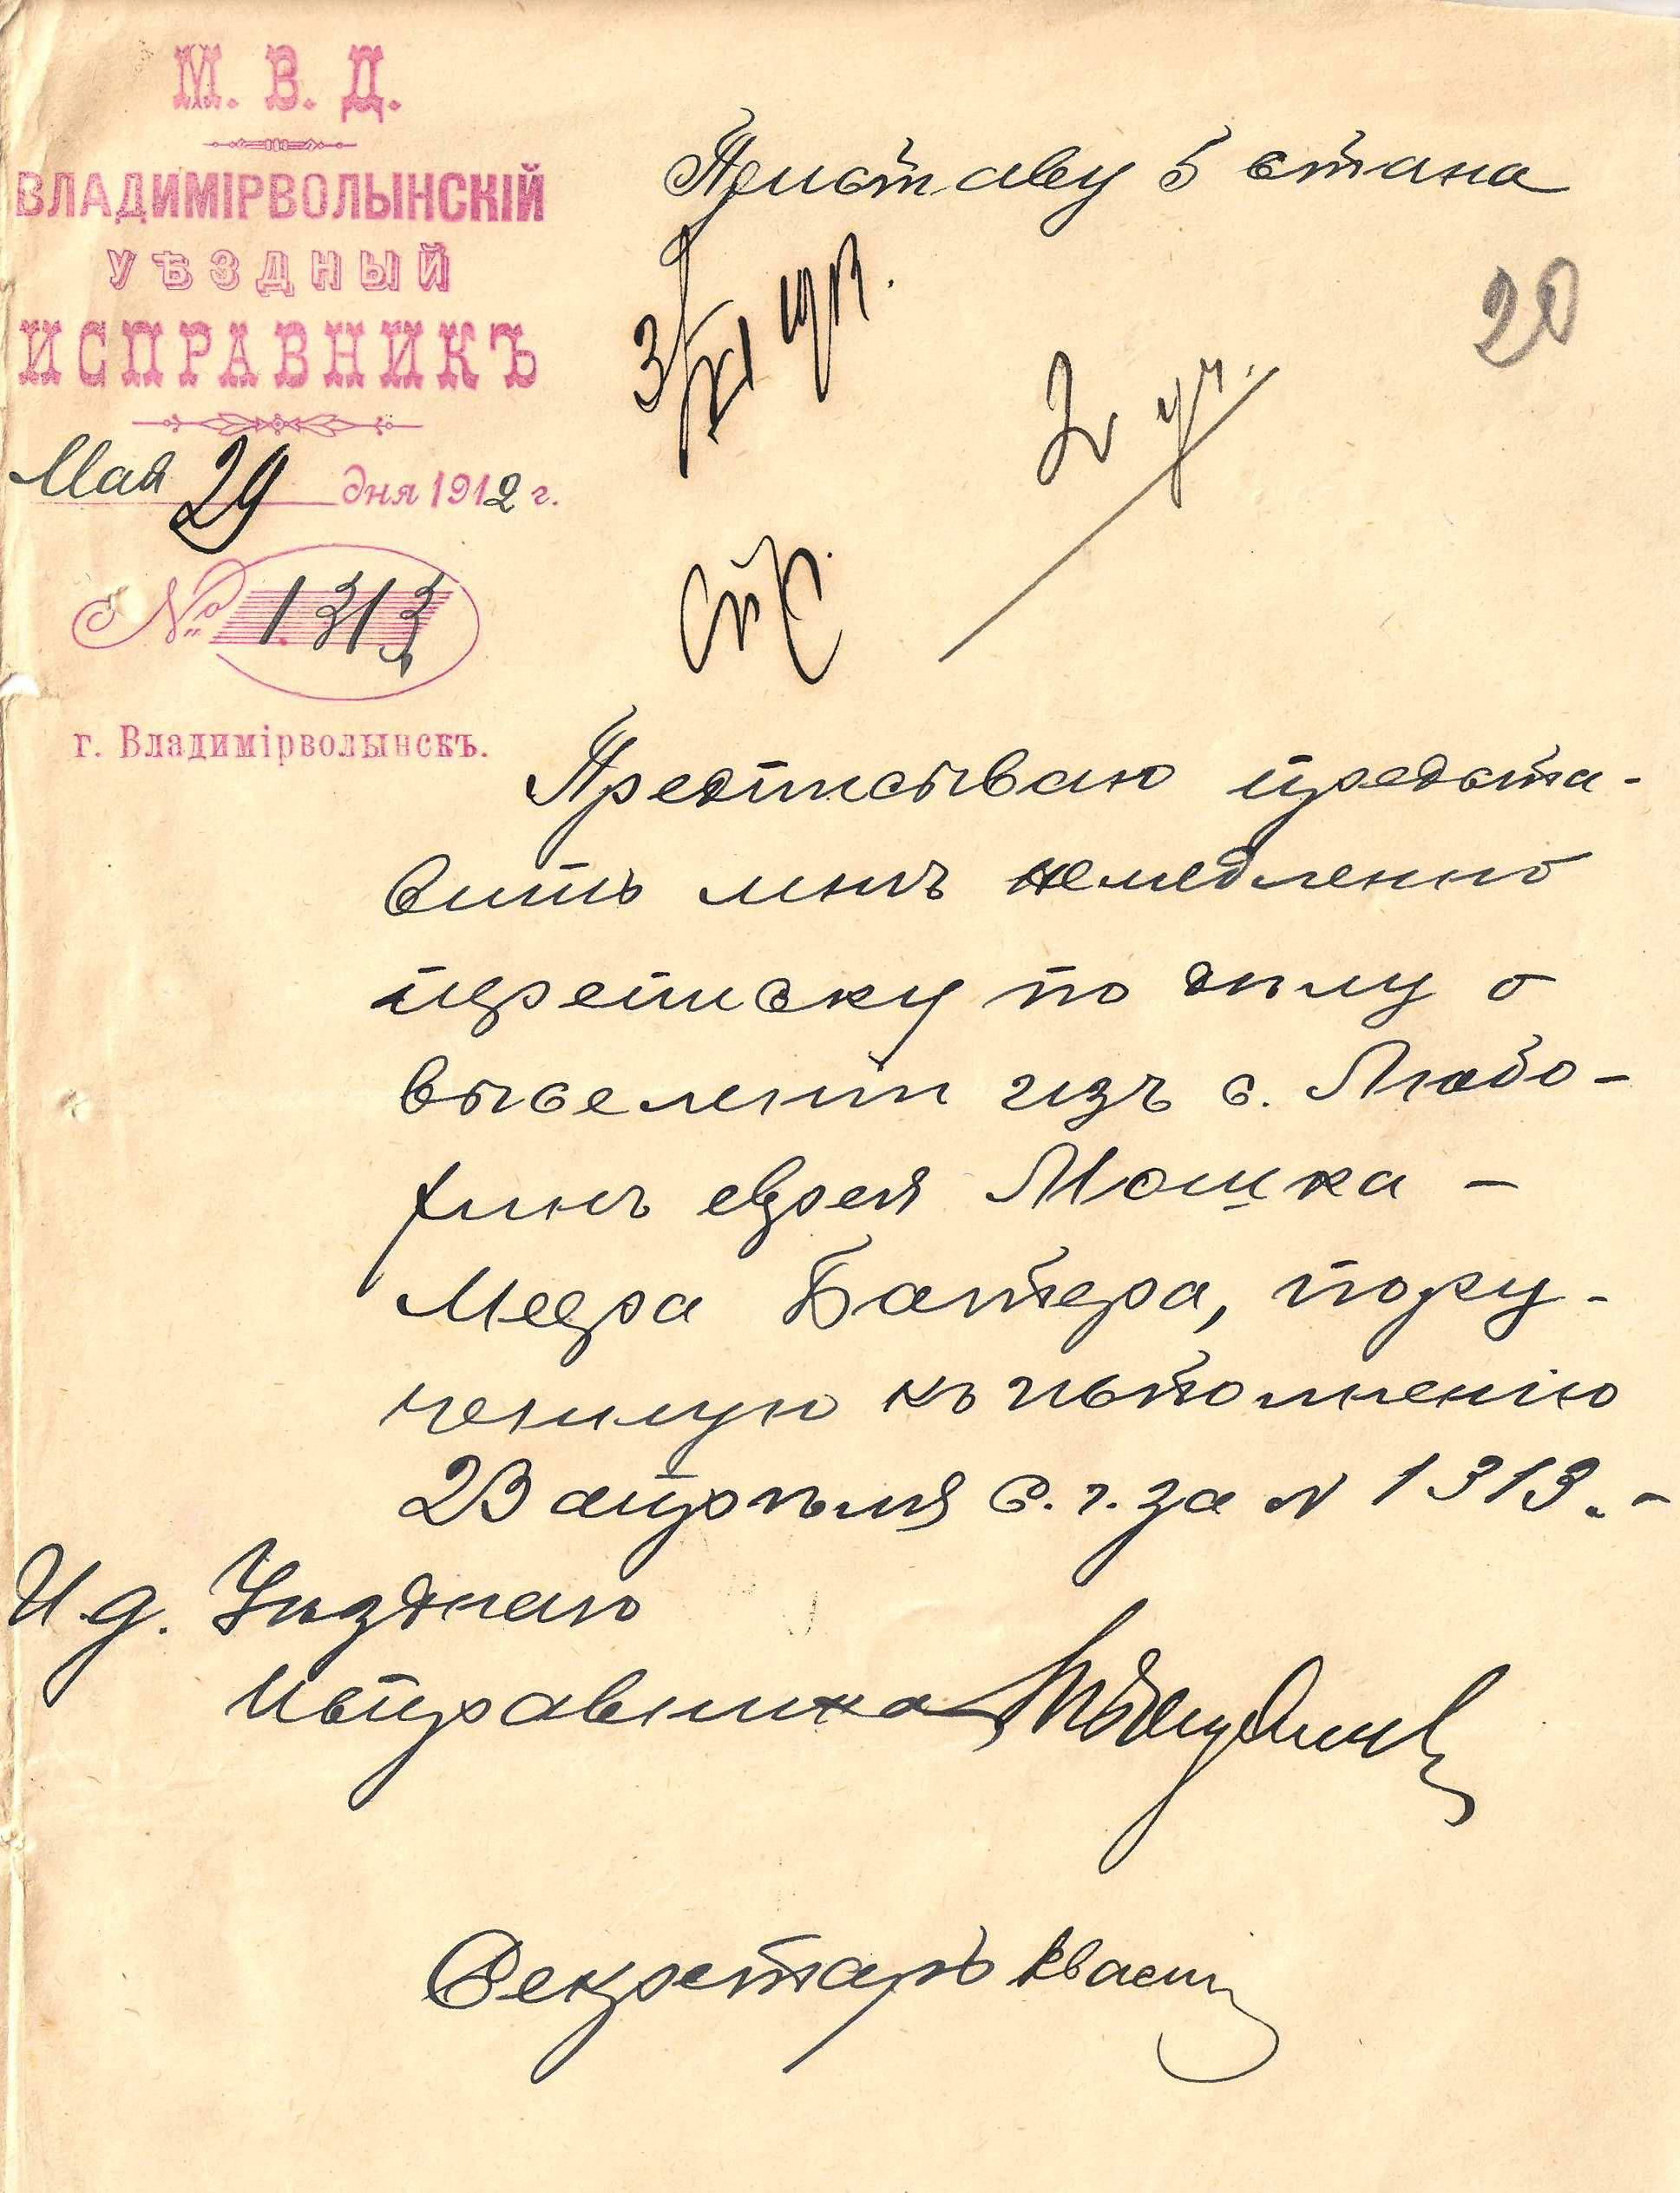 М. В. Д.
ВЛАДИМІРВОЛЫНСКІЙ
УѢЗДНЫЙ
ИСПРАВНИКЪ
Мая 29 дня 1912 г.
№ 1313
г. Владимірволынскъ.
Приставу 5 стана
20
2 уч.
Предписываю предста-
вить мнѣ немедленно
переписку по дѣлу о
выселеніи изъ с. Любо-
хинъ еврея Мошка-
Меера Батера, пору-
ченную къ исполненію
23 апрѣля с. г. за № 1313.-
И д. Уѣзднаго
Исправника
Секретарь